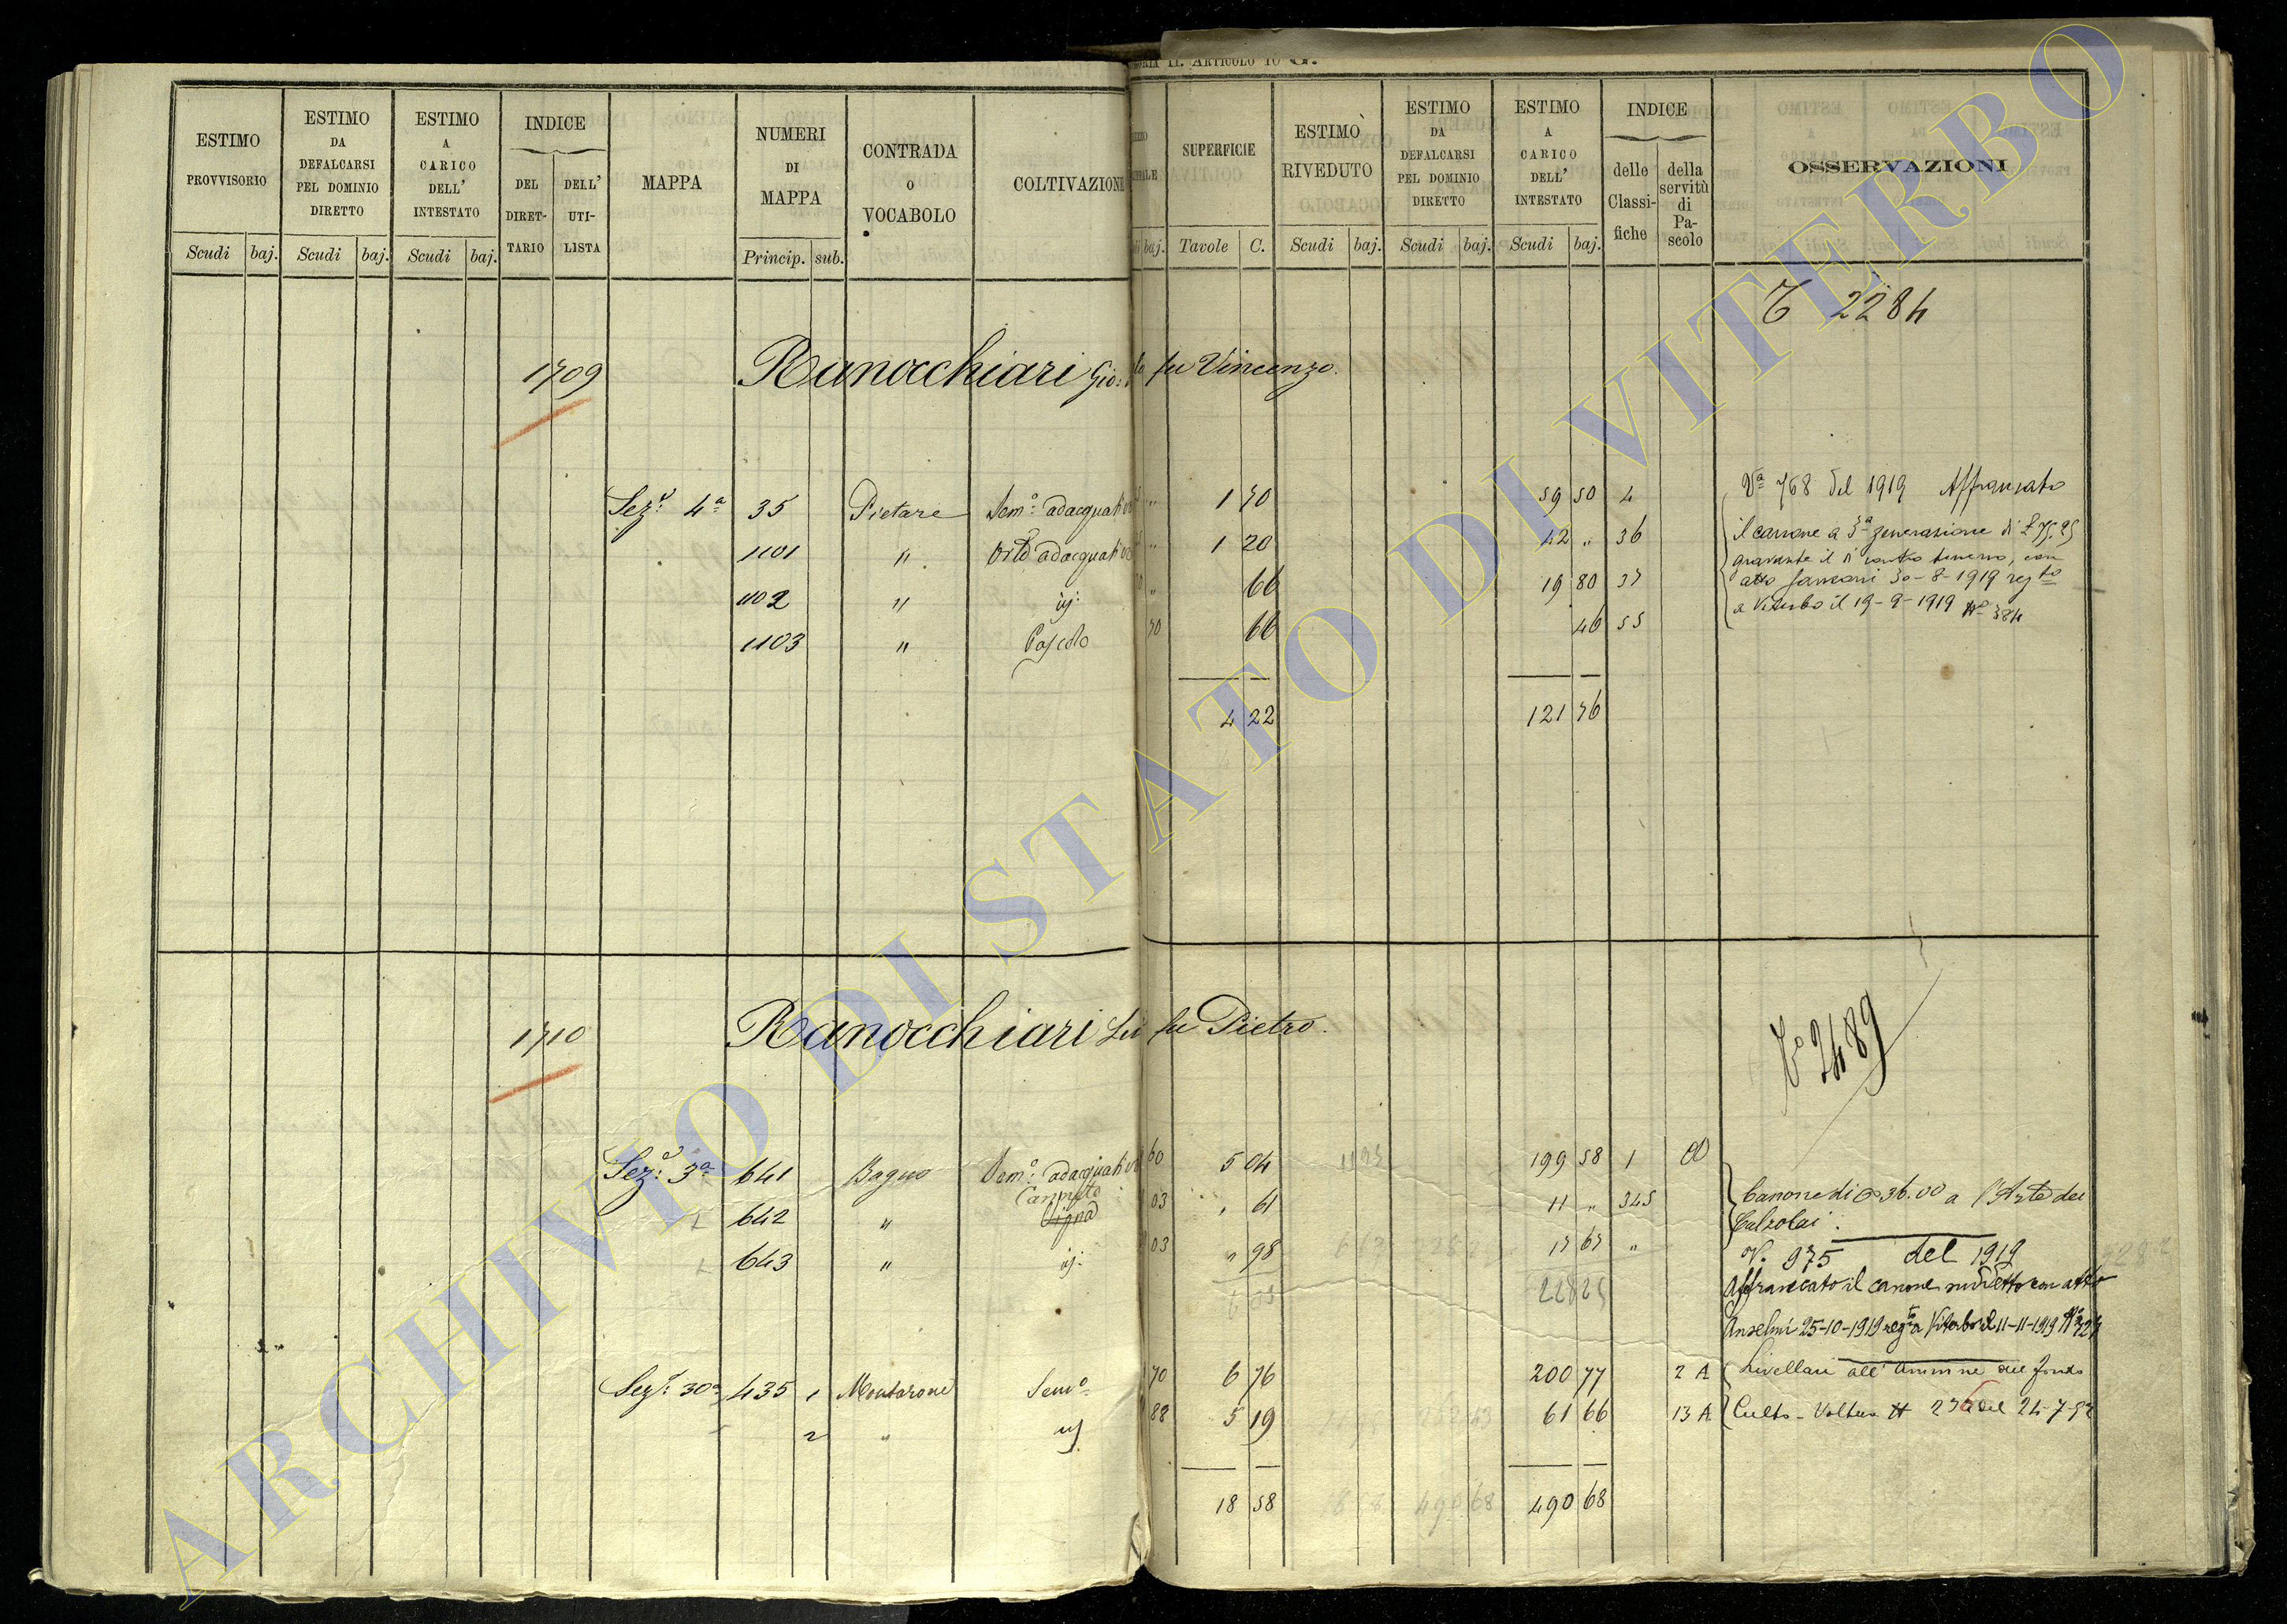 ...ORIA II. ARTICOLO 10 G.
ESTIMO PROVVISORIO Scudi baj.
ESTIMO DA DEFALCARSI PEL DOMINIO DIRETTO Scudi baj.
ESTIMO A CARICO DELL' INTESTATO Scudi baj.
INDICE DEL DIRET-TARIO DELL' UTI-LISTA
MAPPA
NUMERI DI MAPPA Princip. sub.
CONTRADA O VOCABOLO
COLTIVAZIONE
baj.
SUPERFICIE Tavole C.
ESTIMO RIVEDUTO Scudi baj.
ESTIMO DA DEFALCARSI PEL DOMINIO DIRETTO Scudi baj.
ESTIMO A CARICO DELL' INTESTATO Scudi baj.
INDICE delle Classi-fiche della servitù di Pa-scolo
OSSERVAZIONI
2284
1709 Ranocchiari Gio: fu Vincenzo.
Sez.e 4a 35 Pietare Sem.o adacquativo 1 70 59 50 4
1101 " Orto adacquativo 1 20 42 " 36
1102 " id: 66 19 80 37
1103 " Pascolo 70 66 46 55
4 22 121 76
Va 768 del 1919 Affrancato
il canone a 3a generazione di £ 75.25
gravante il contro terreno, con
atto 30-8-1919 reg.to
a Viterbo il 19-9-1919 No 384
1710 Ranocchiari fu Pietro.
Vo 2489
Sez.e 3a 641 Bagno Sem.o adacquativo 60 5 04 199 58 1
Canneto
642 " Vigna 03 " 61 11 " 345
643 " id: 03 " 98 17 67 "
228 25
Canone di 36.00 a l'Arte dei
Calzolai.
N. 975 del 1919
Affrancato il canone suddetto con atto
Anselmi 25-10-1919 reg.to a Viterbo il 11-11-1919
Sez.e 30a 435 1 Montarone Sem.o 70 6 76 200 77 2 A
2 " id 88 5 19 61 66 13 A
Livellari all' Ammne del fondo
Culto - Voltura del 24-7-
18 58 490 68 490 68
ARCHIVIO DI STATO DI VITERBO